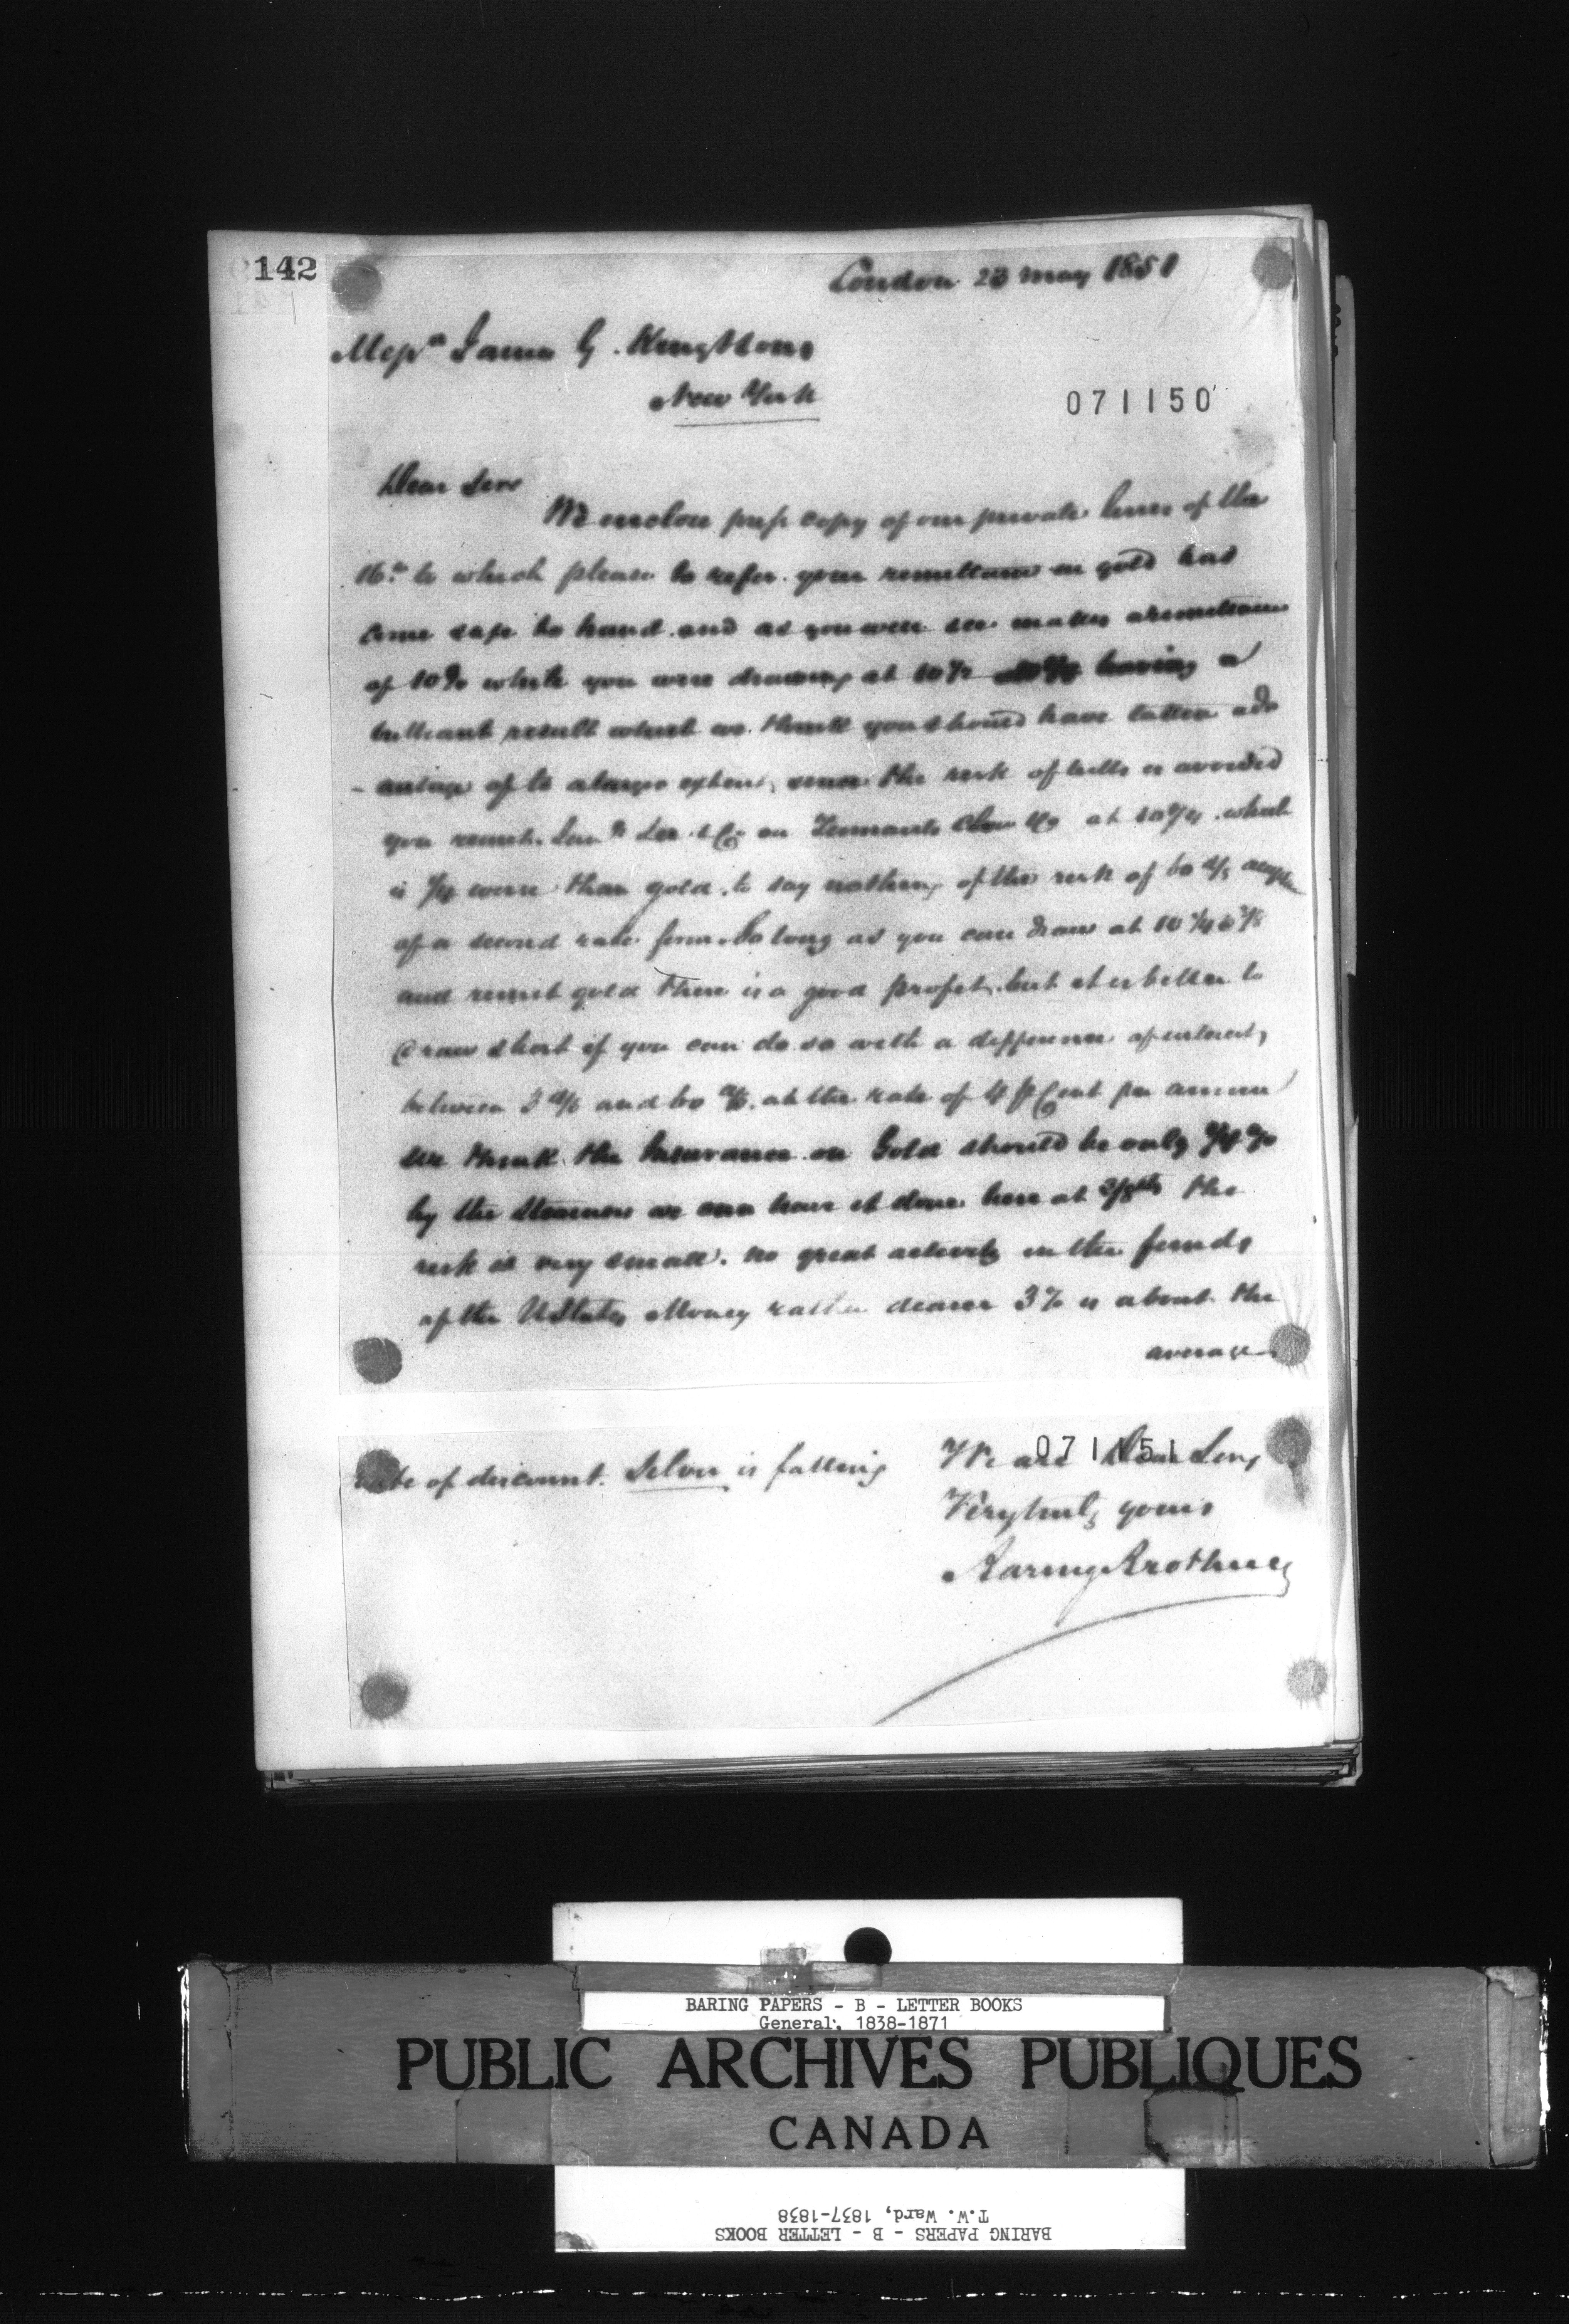 142
London 23 May 1851
Messrs James G. King & Sons
New York
071150
Dear Sirs
We enclose press copy of our private lines of the
16th to which please to refer. your remittance in gold has
come safe to hand and as you will see makes a remittance
of 10% while you were drawing at 10½ having a
brilliant result which we think you should have taken adv
- antage of to a larger extent, since the risk of bills is avoided
you remit & Co on Tennants Clow & Co at 10¾ which
is ¾ worse than gold, to say nothing of the risk of 60 d/s accepce
of a second rate firm. So long as you can draw at 10 ¼ @ ⅜
and remit gold there is a good profit, but it is better to
draw short if you can do so with a difference of interest,
between 3 d/s and 60 d/s. at the rate of 4 p Cent per annum
we think the Insurance on Gold should be only %
by the Steamers we can have it done here at 3/8ths the
risk is very small. No great activity in the funds
of the UStates Money rather dearer 3% is about the
average
rate of discount. Silver is falling
071151
We are Dear Sirs,
Very truly yours
Baring Brothers
BARING PAPERS - B - LETTER BOOKS
General, 1838-1871
PUBLIC ARCHIVES PUBLIQUES
CANADA
BARING PAPERS - B - LETTER BOOKS
T.W. Ward, 1837-1838